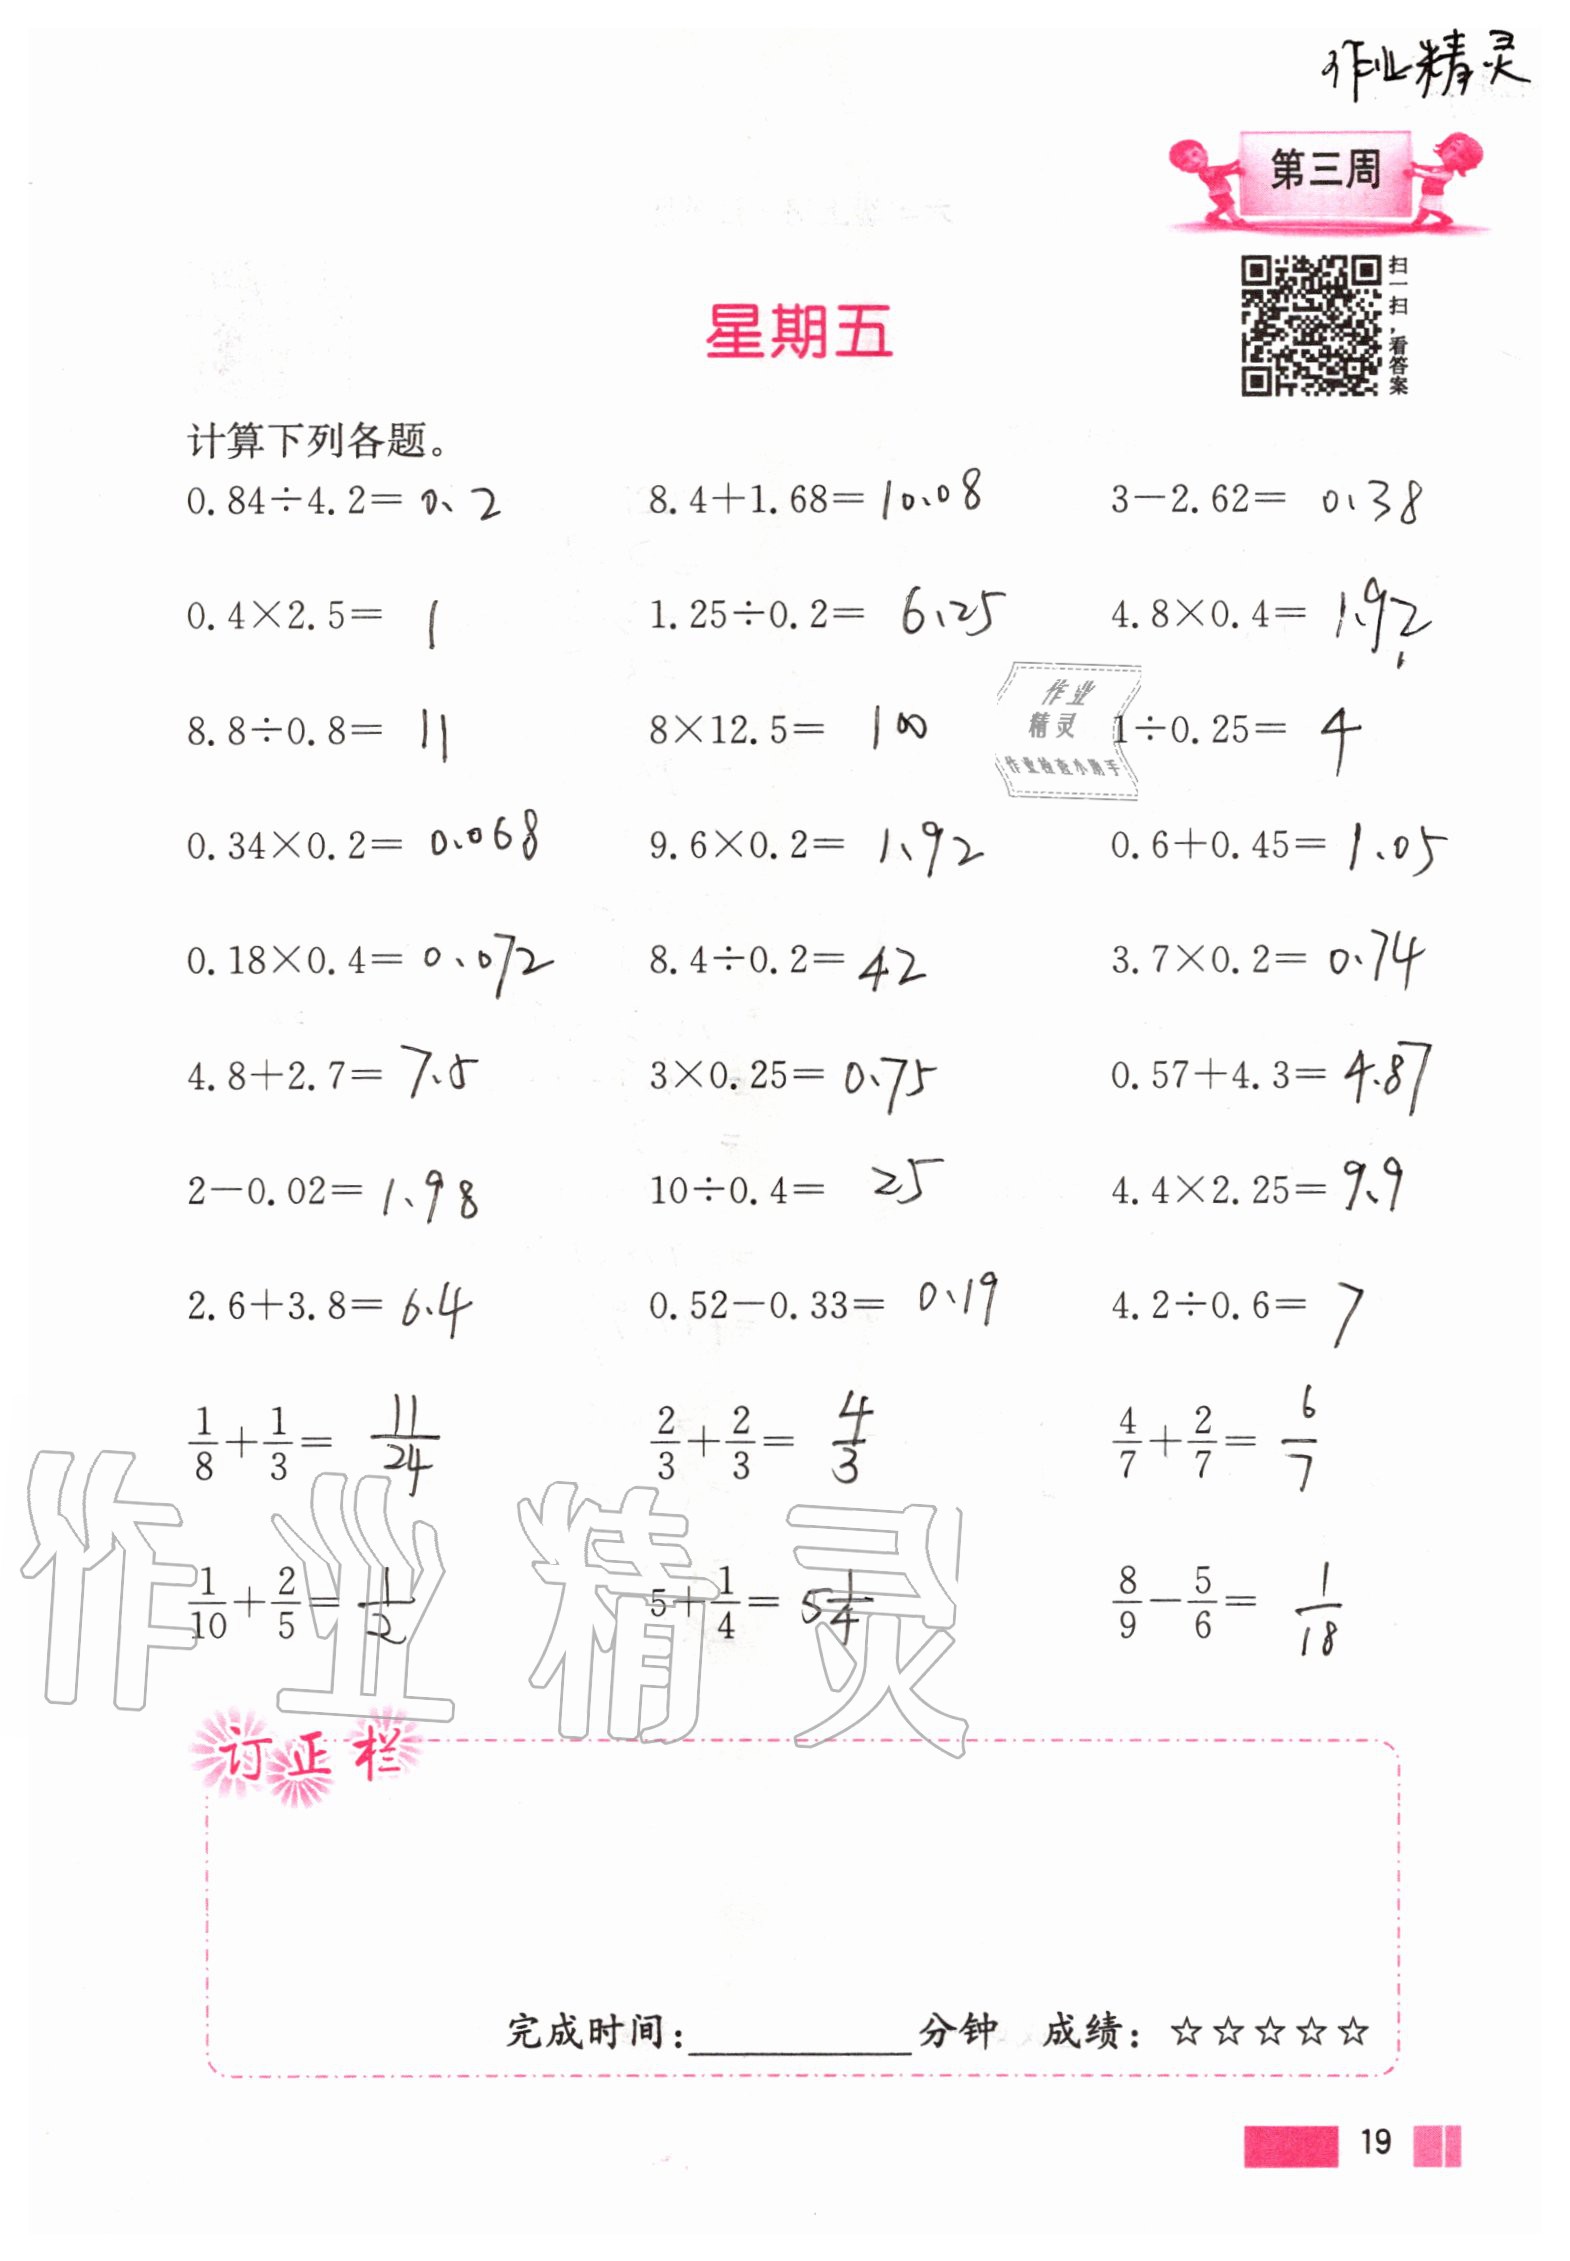 作业精灵
第三周
扫一扫，看答案
星期五
计算下列各题。
0.84÷4.2= 0.2 8.4+1.68= 10.08 3-2.62= 0.38
0.4×2.5= 1 1.25÷0.2= 6.25 4.8×0.4= 1.92
作业
精灵
作业检查小助手
8.8÷0.8= 11 8×12.5= 100 1÷0.25= 4
0.34×0.2= 0.068 9.6×0.2= 1.92 0.6+0.45= 1.05
0.18×0.4= 0.072 8.4÷0.2= 42 3.7×0.2= 0.74
4.8+2.7= 7.5 3×0.25= 0.75 0.57+4.3= 4.87
2-0.02= 1.98 10÷0.4= 25 4.4×2.25= 9.9
2.6+3.8= 6.4 0.52-0.33= 0.19 4.2÷0.6= 7
1/8+1/3= 11/24 2/3+2/3= 4/3 4/7+2/7= 6/7
1/10+2/5= 1/2 5+1/4= 5 1/4 8/9-5/6= 1/18
作业精灵
订正栏
完成时间：__________分钟 成绩：☆☆☆☆☆
19